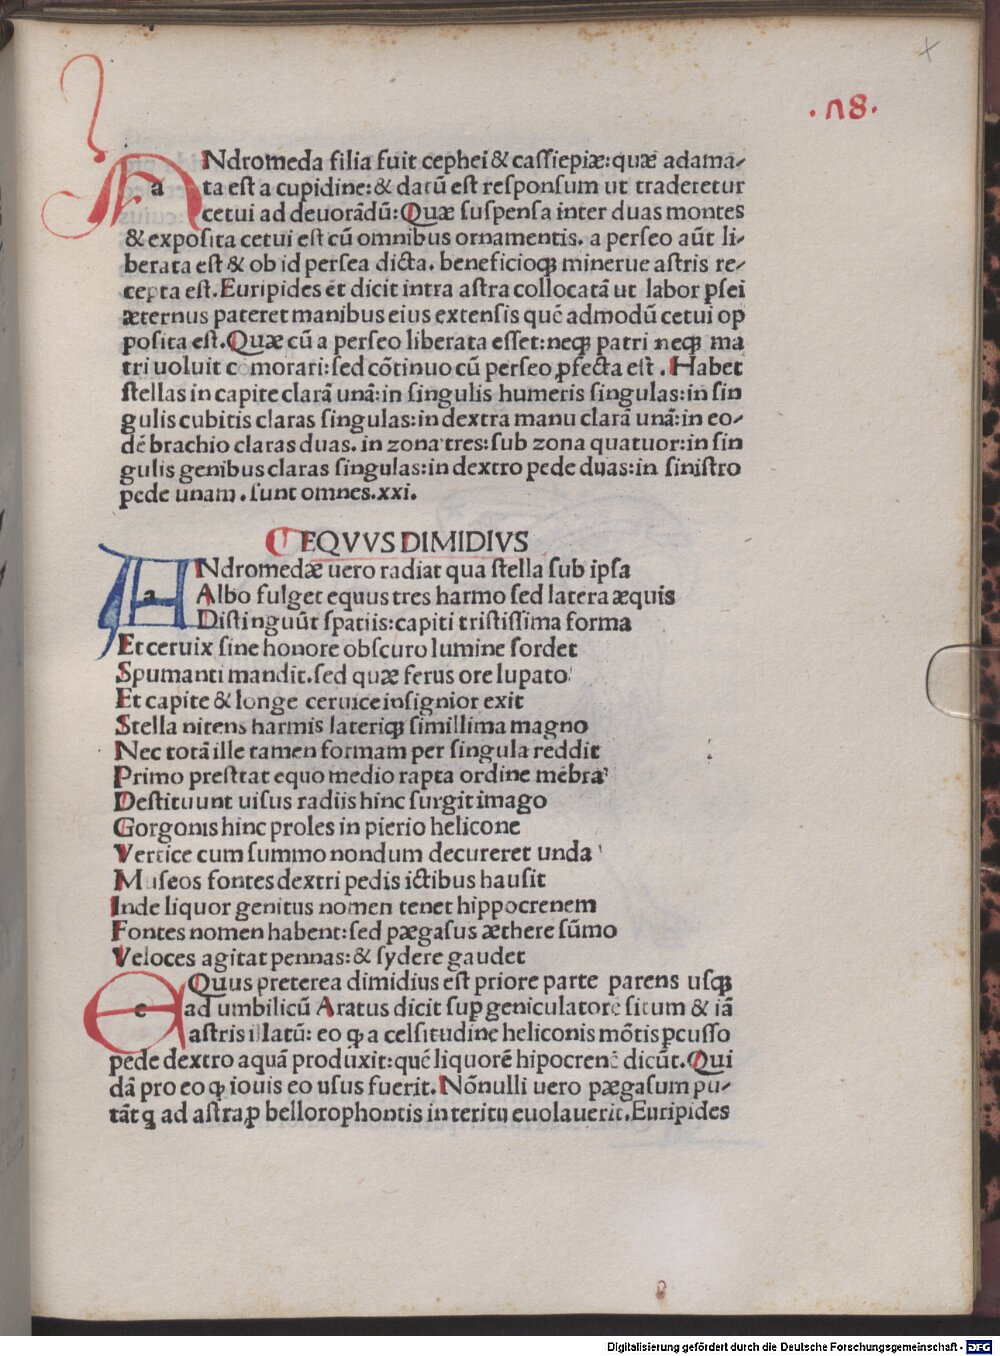 .n8.
ANdromeda filia fuit cephei & cassiepiæ: quæ adama-
ta est a cupidine: & datū est responsum ut traderetur
cetui ad deuorādū: Quæ suspensa inter duas montes
& exposita cetui est cū omnibus ornamentis. a perseo aūt li-
berata est & ob id persea dicta. beneficioqꝫ minerue astris re-
cepta est. Euripides et dicit intra astra collocatā ut labor ꝑsei
æternus pateret manibus eius extensis quē admodū cetui op
posita est. Quæ cū a perseo liberata esset: neqꝫ patri neqꝫ ma
tri uoluit comorari: sed cōtinuo cū perseo ꝓfecta est. Habet
stellas in capite clarā unā: in singulis humeris singulas: in sin
gulis cubitis claras singulas: in dextra manu clarā unā: in eo-
dē brachio claras duas. in zona tres: sub zona quatuor: in sin
gulis genibus claras singulas: in dextro pede duas: in sinistro
pede unam. sunt omnes .xxi.
EQVVS DIMIDIVS
ANdromedæ uero radiat qua stella sub ipsa
Albo fulget equus tres harmo sed latera æquis
Distinguūt spatiis: capiti tristissima forma
Et ceruix sine honore obscuro lumine sordet
Spumanti mandit. sed quæ ferus ore lupato
Et capite & longe ceruice insignior exit
Stella nitens harmis lateriqꝫ simillima magno
Nec totā ille tamen formam per singula reddit
Primo prestrat equo medio rapta ordine mēbra
Destituunt uisus radiis hinc surgit imago
Gorgonis hinc proles in pierio helicone
Vertice cum summo nondum decureret unda
Museos fontes dextri pedis ictibus hausit
Inde liquor genitus nomen tenet hippocrenem
Fontes nomen habent: sed pægasus æthere sūmo
Veloces agitat pennas: & sydere gaudet
EQuus preterea dimidius est priore parte parens usqꝫ
ad umbilicū Aratus dicit suꝑ geniculatorē situm & iā
astris illatū: eo ꝙ a celsitudine heliconis mōtis ꝑcusso
pede dextro aquā produxit: quē liquorē hipocrenē dicūt. Qui
dā pro eo ꝙ iouis eo usus fuerit. Nōnulli uero pægasum pu-
tāt ꝙ ad astra ꝑ bellorophontis interitu euolauerit. Euripides
Digitalisierung gefördert durch die Deutsche Forschungsgemeinschaft - DFG